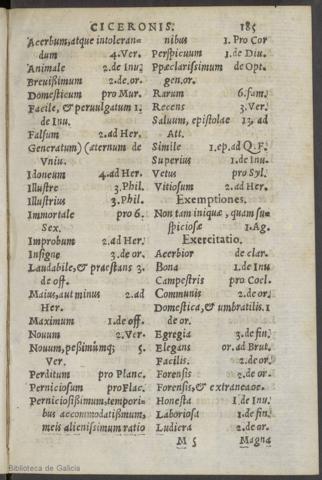 CICERONIS. 185
Acerbum, atque intoleran-
dum 4. Ver.
Animale 2. de Inu.
Breuißimum 2. de. or.
Domesticum pro Mur.
Facile, & peruulgatum 1.
de Inu.
Falsum 2. ad Her.
Generatum) (æternum de
Vniu.
Idoneum 4. ad Her.
Illustre 3. Phil.
Illustrius 3. Phil.
Immortale pro 6.
Sex.
Improbum 2. ad Her.
Insigne 3. de or.
Laudabile, & præstans 3.
de off.
Maius, aut minus 2. ad
Her.
Maximum 1. de off.
Nouum 2. Ver.
Nouum, peßimúmq; 5.
Ver.
Perditum pro Planc.
Perniciosum pro Flac.
Perniciosißimum, tempori-
bus accommodatißimum,
meis alienissimum ratio
nibus 1. Pro Cor
Perspicuum 1. de Diu.
Præclarissimum de Opt.
gen. or.
Rarum 6. fam.
Recens 3. Ver.
Saluum, epistolae 13. ad
Att.
Simile 1. ep. ad Q. F.
Superius 1. de Inu.
Vetus pro Syl.
Vitiosum 2. ad Her.
Exemptiones.
Non tam iniquæ, quam su-
spiciosæ 1. Ag.
Exercitatio.
Acerbior de clar.
Bona 1. de Inu
Campestris pro Coel.
Communis 2. de or.
Domestica, & umbratilis. 1
de or.
Egregia 3. de fin.
Elegans or. ad Brut.
Facilis. 2. de or.
Forensis 2. de or.
Forensis, & extraneaoe.
Honesta 1. de Inu.
Laboriosa 1. de fin.
Ludiera 2. de or.
M 5 Magna
Biblioteca de Galicia